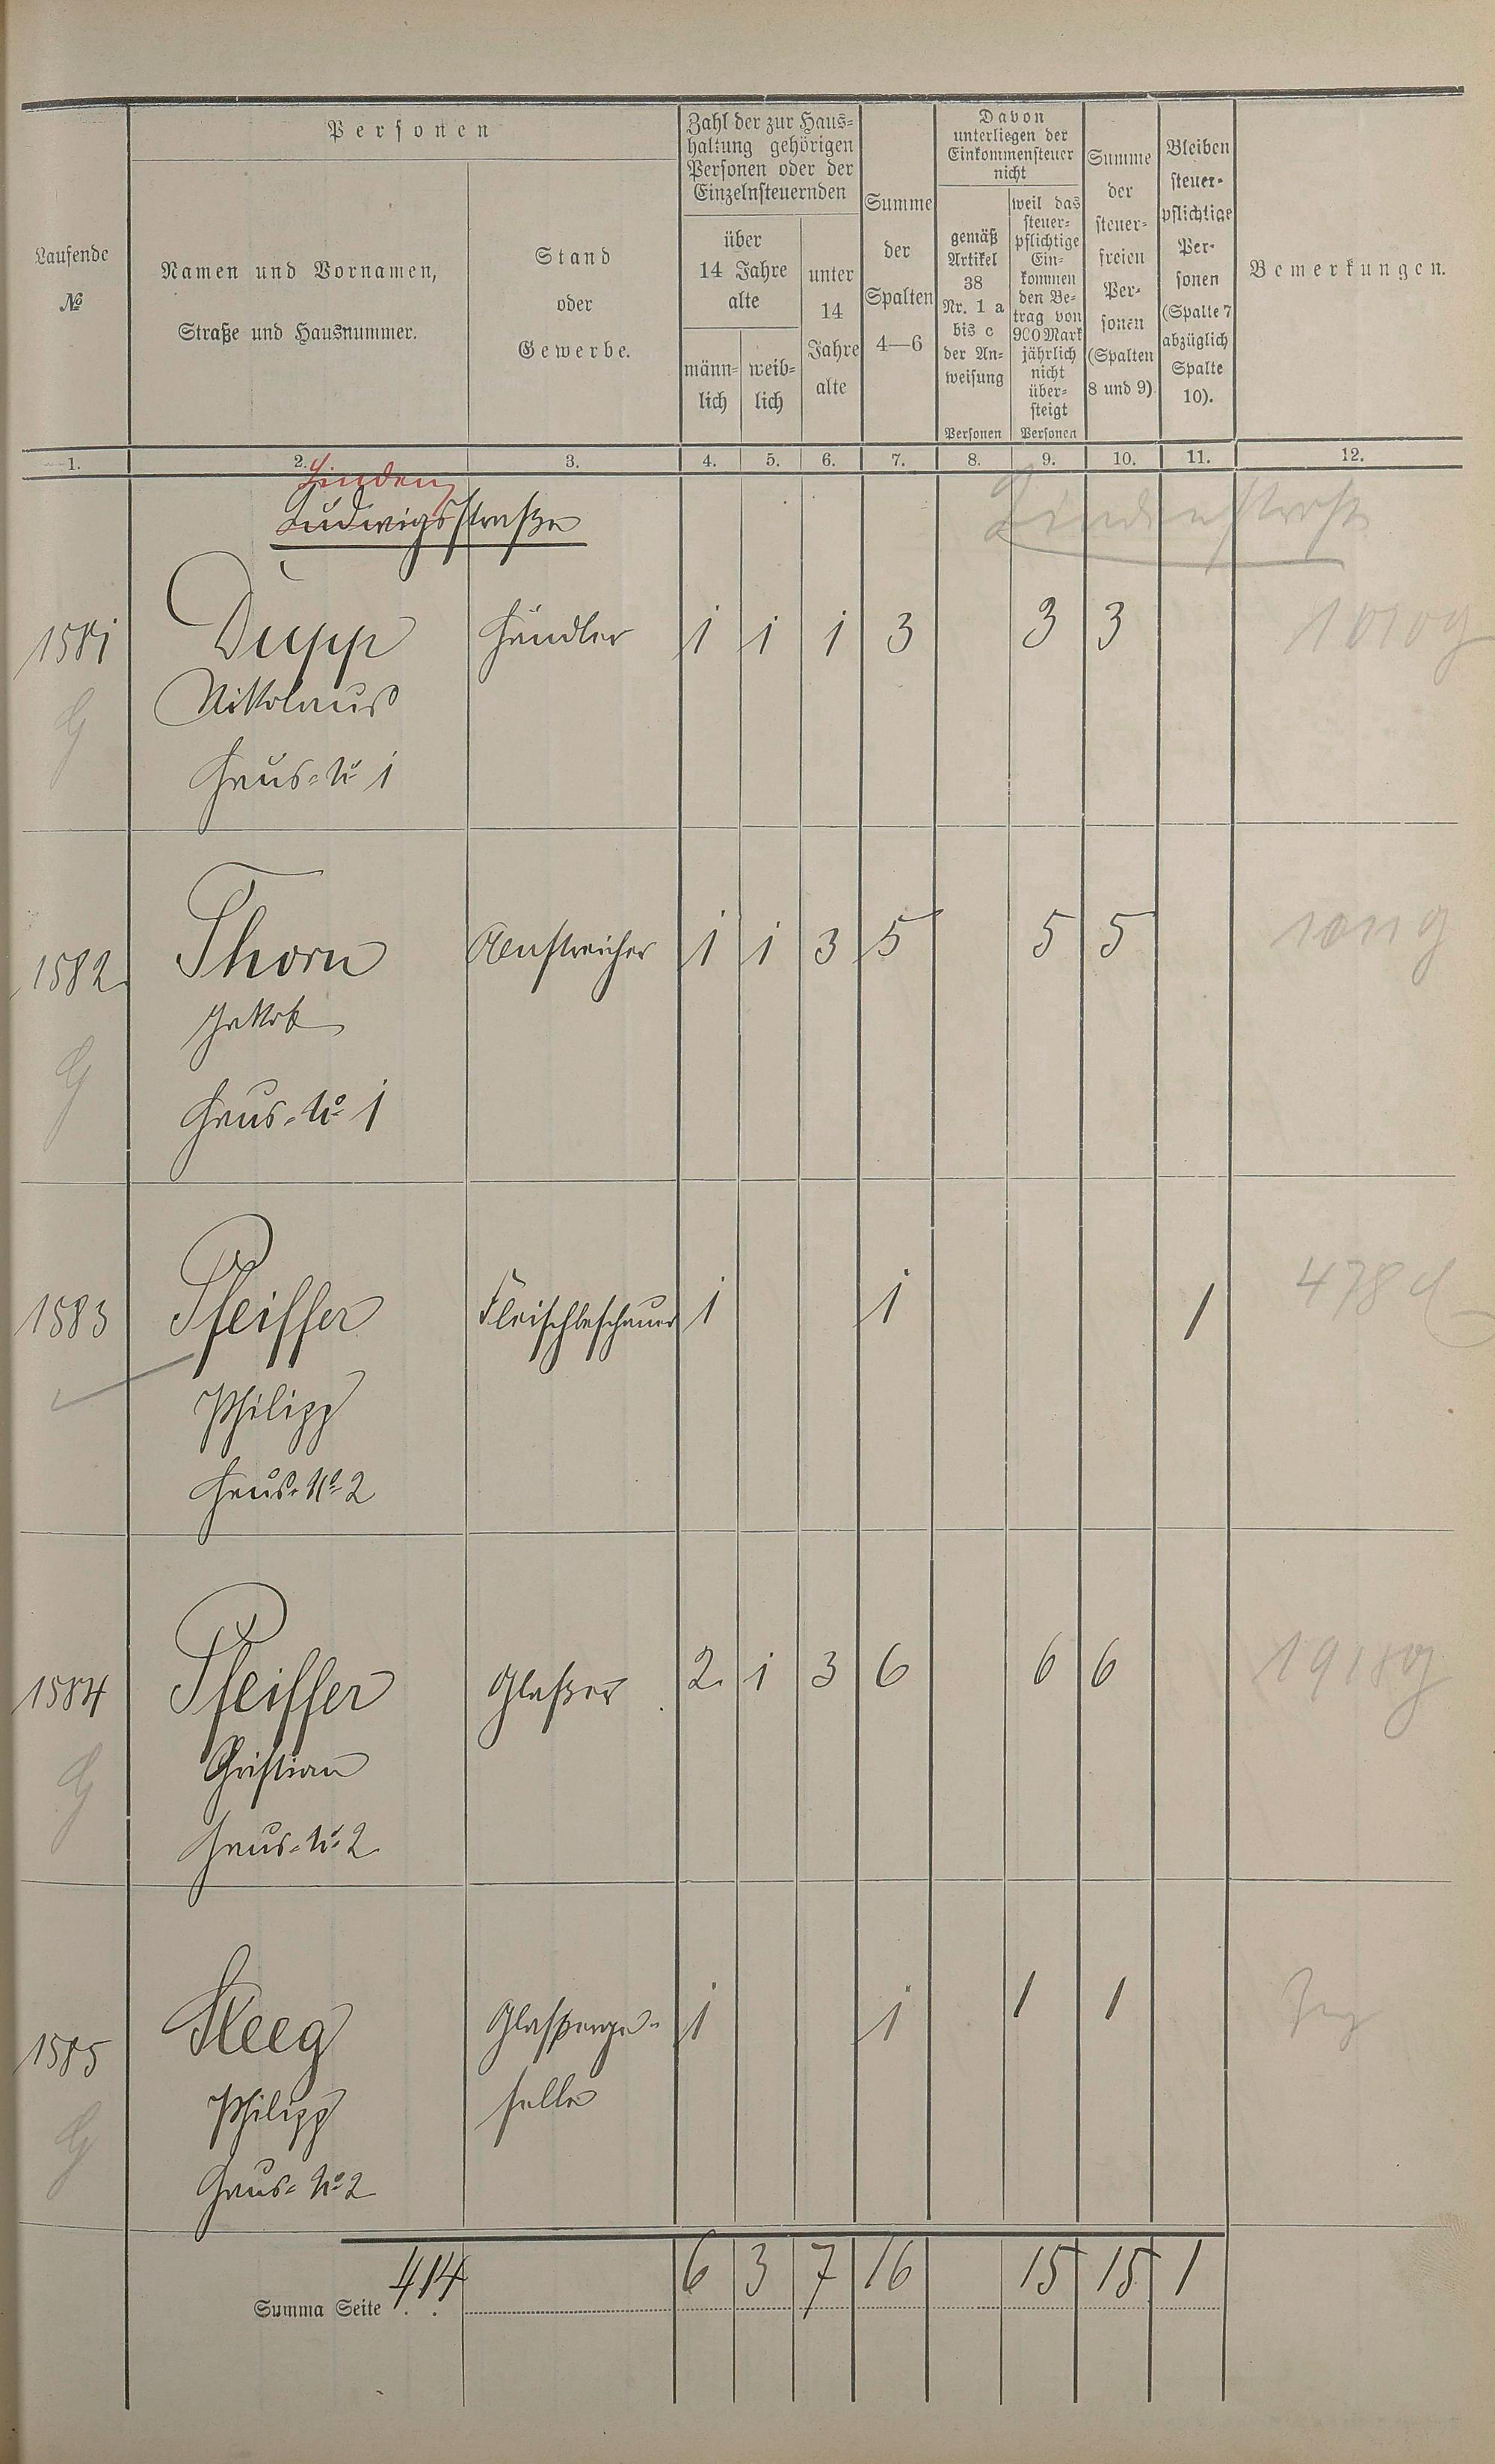 Personen
Zahl der zur Haus=
haltung gehörigen
Personen oder der
Einzelnsteuernden
Davon
unterliegen der
Einkommensteuer
nicht
Laufende
№
Namen und Vornamen,
Straße und Hausnummer.
Stand
oder
Gewerbe.
über
14 Jahre
alte
männ=
lich
weib=
lich
unter
14
Jahre
alte
Summe
der
Spalten
4—6
gemäß
Artikel
38
Nr. 1 a
bis c
der An=
weisung
Personen
weil das
steuer=
pflichtige
Ein=
kommen
den Be=
trag von
900 Mark
jährlich
nicht
über=
steigt
Personen
Summe
der
steuer=
freien
Per=
sonen
(Spalten
8 und 9).
Bleiben
steuer=
pflichtige
Per=
sonen
(Spalte 7
abzüglich
Spalte
10).
Bemerkungen.
1. 2. 3. 4. 5. 6. 7. 8. 9. 10. 11. 12.
Linden
Ludwigsstraße
Lindenstraße
1581 Dupp Händler 1 1 1 3 3 3 1010 g
Nikolaus
G
Haus=№ 1
1582 Thorn Anstreicher 1 1 3 5 5 5 1011 g
Jakob
G
Haus=№ 1
1583 Pfeiffer Fleischbeschauer 1 1 1 478
Philipp
Haus=№ 2
1584 Pfeiffer Glaßer 2 1 3 6 6 6 1918 g
Christian
G
Haus=№ 2
1585 Steeg Glaßerge= 1 1 1 1
Philipp selle
G
Haus=№ 2
Summa Seite 414 6 3 7 16 15 15 1